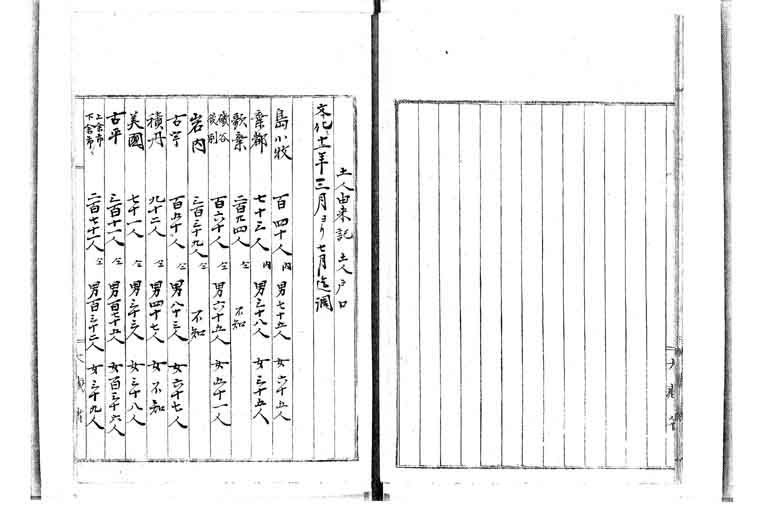 土人由来記 土人戸口
文化十一年三月ヨリ七月迄調
島小牧 百四十人 内 男七十五人 女六十五人
寿都 七十三人 内 男三十八人 女三十五人
歌棄 二百九四人 不知
磯谷 百六十人 仝 男六十五人 女
岩内 三百三十九人 仝 不知
古宇 百五十人 仝 男八十三人 女六十七人
積丹 九十二人 仝 男四十七人 女不知
美國 七十一人 仝 男三十三人 女三十八人
古平 三百十一人 仝 男百七十五人 女百三十六人
上余市 下余市 二百七十一人 仝 男百三十二人 女三十九人
大蔵省
大蔵省